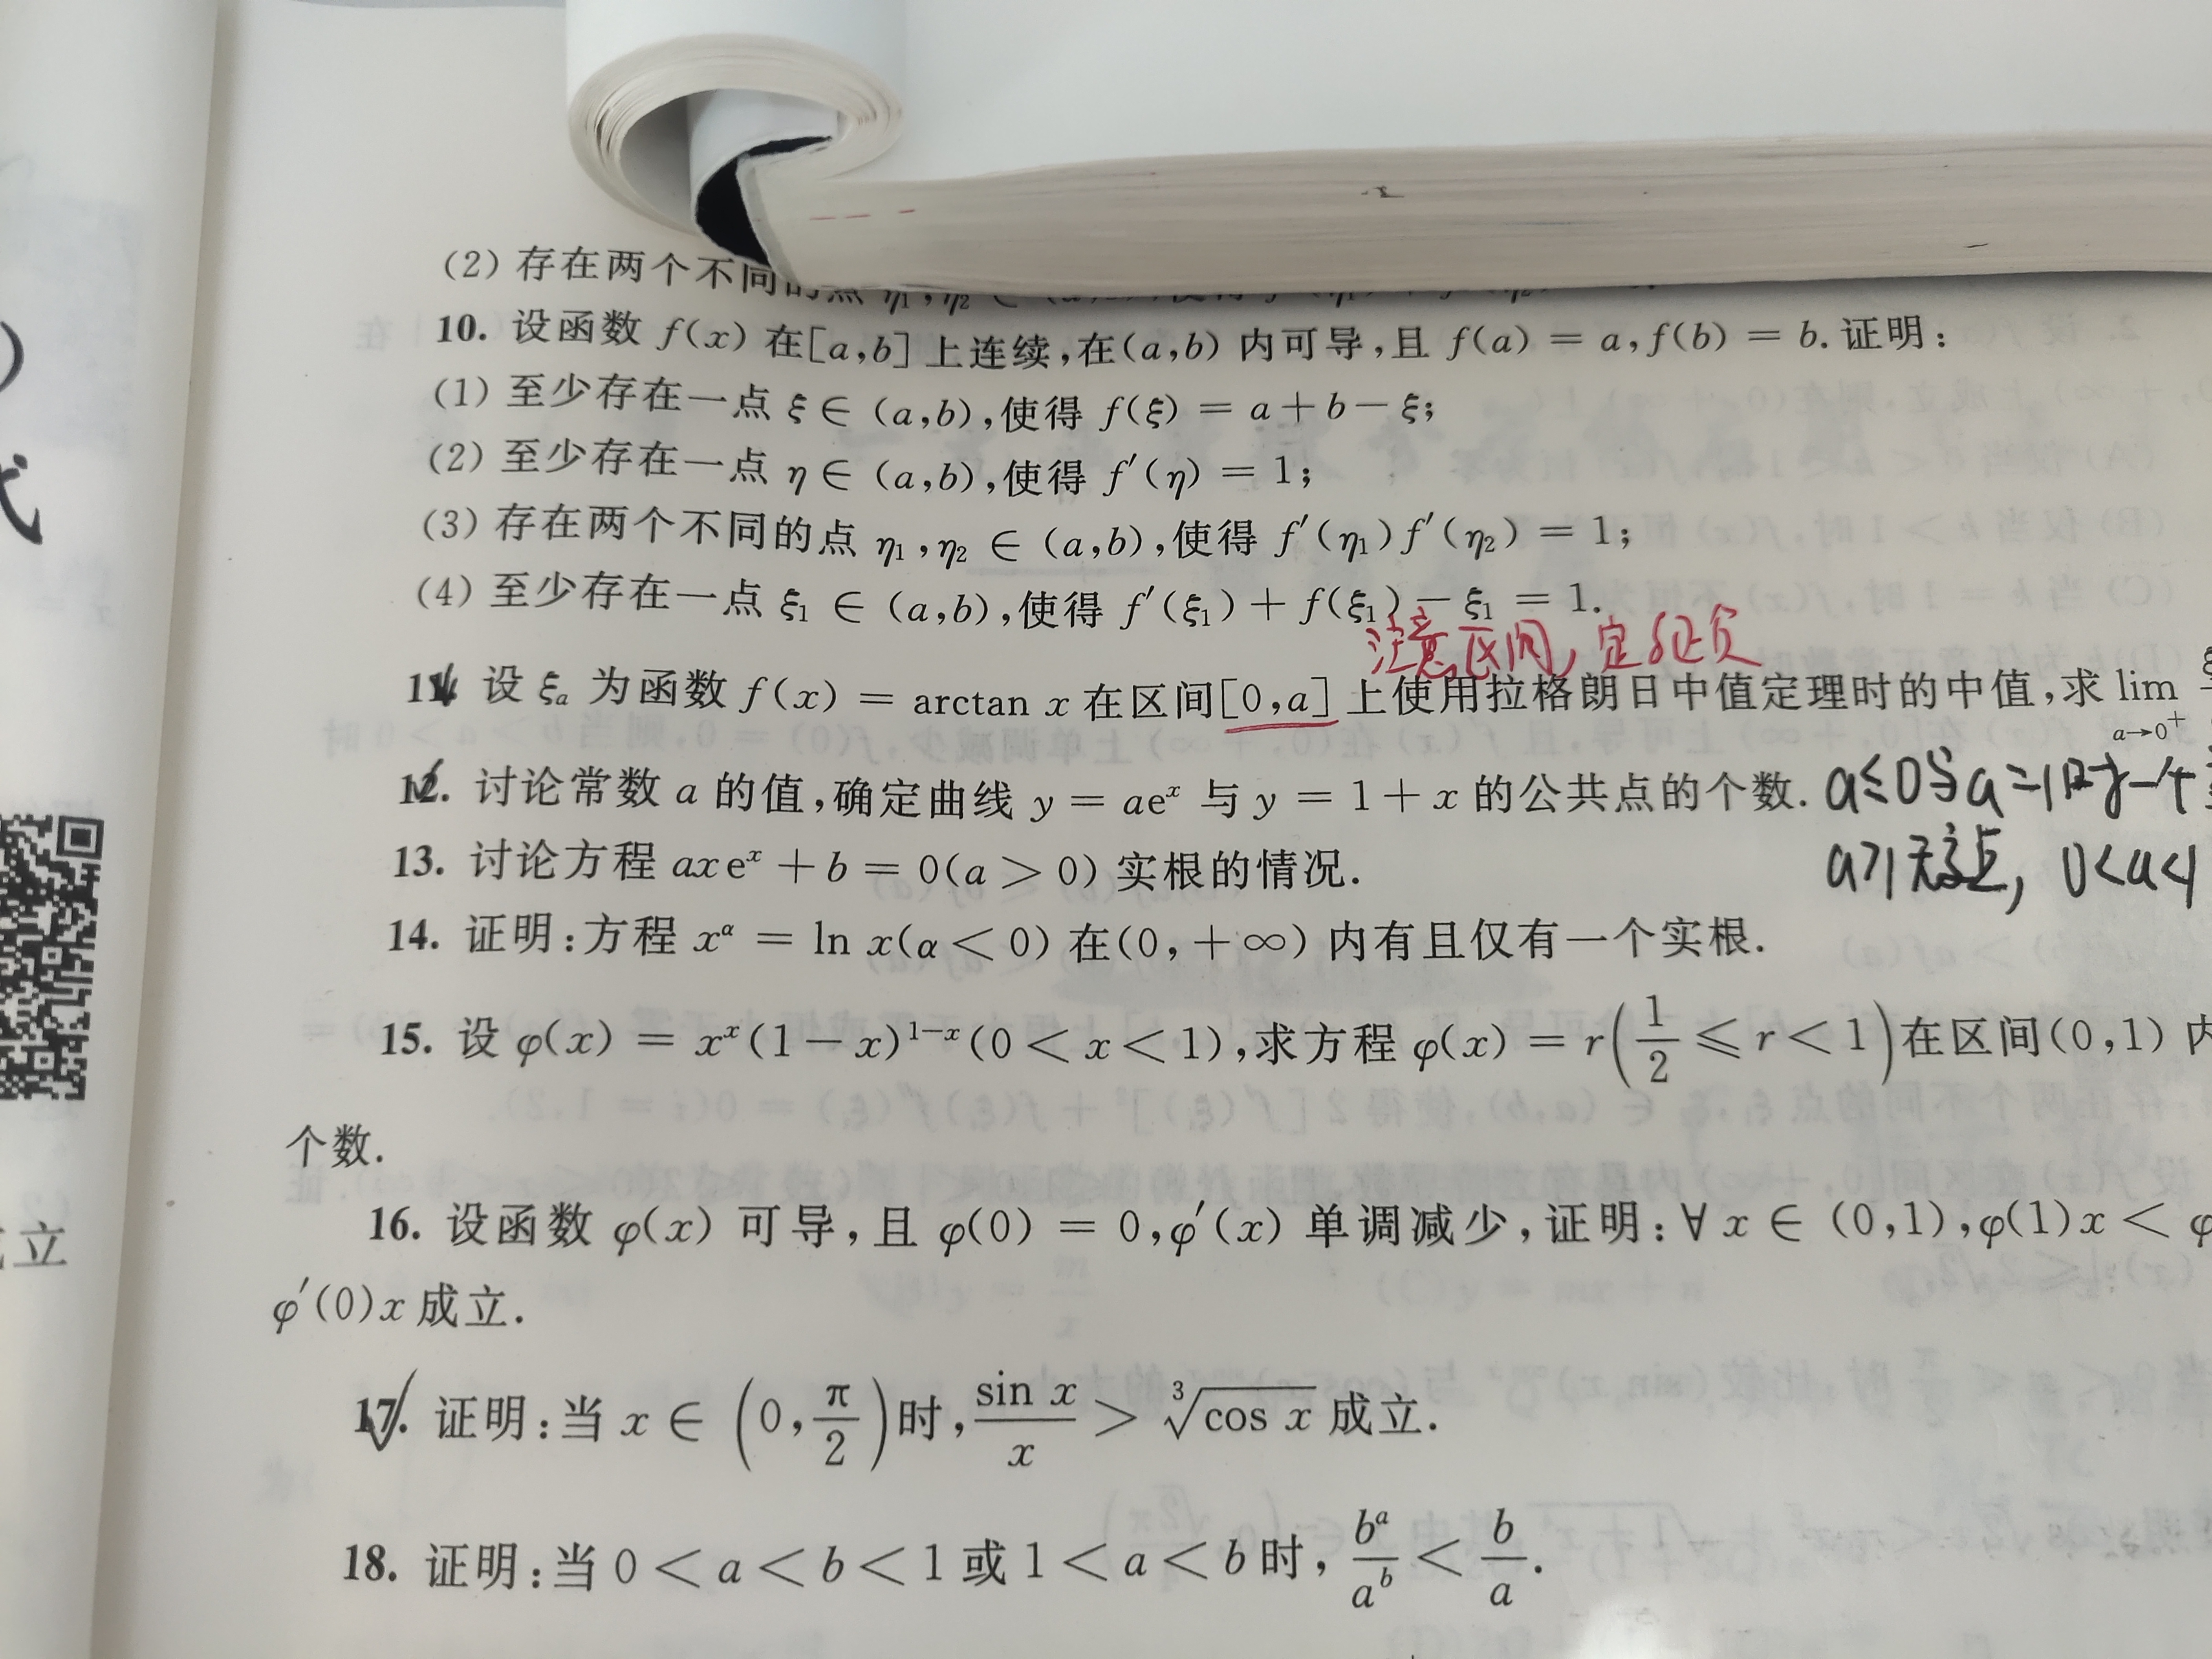 (2) 存在两个不同的点 η₁,η₂ ∈
10. 设函数 f(x) 在[a,b] 上连续,在(a,b) 内可导,且 f(a) = a,f(b) = b.证明:
(1) 至少存在一点 ξ ∈ (a,b),使得 f(ξ) = a+b−ξ;
(2) 至少存在一点 η ∈ (a,b),使得 f′(η) = 1;
(3) 存在两个不同的点 η₁,η₂ ∈ (a,b),使得 f′(η₁)f′(η₂) = 1;
(4) 至少存在一点 ξ₁ ∈ (a,b),使得 f′(ξ₁)+f(ξ₁)−ξ₁ = 1.
注意区间,定正负
11. 设 ξₐ 为函数 f(x) = arctan x 在区间[0,a] 上使用拉格朗日中值定理时的中值,求 lim a→0⁺
12. 讨论常数 a 的值,确定曲线 y = aeˣ 与 y = 1+x 的公共点的个数. a≤0当a=1时一个
a>1无交点, 0<a<1
13. 讨论方程 axeˣ + b = 0(a > 0) 实根的情况.
14. 证明:方程 x^α = ln x(α < 0) 在(0,+∞) 内有且仅有一个实根.
15. 设 φ(x) = xˣ(1−x)¹⁻ˣ(0 < x < 1),求方程 φ(x) = r(1/2 ≤ r < 1)在区间(0,1) 内
个数.
16. 设函数 φ(x) 可导,且 φ(0) = 0,φ′(x) 单调减少,证明:∀x ∈ (0,1),φ(1)x < φ
φ′(0)x 成立.
17. 证明:当 x ∈ (0,π/2)时,sin x/x > ∛cos x 成立.
18. 证明:当 0 < a < b < 1 或 1 < a < b 时,bᵃ/aᵇ < b/a.
立